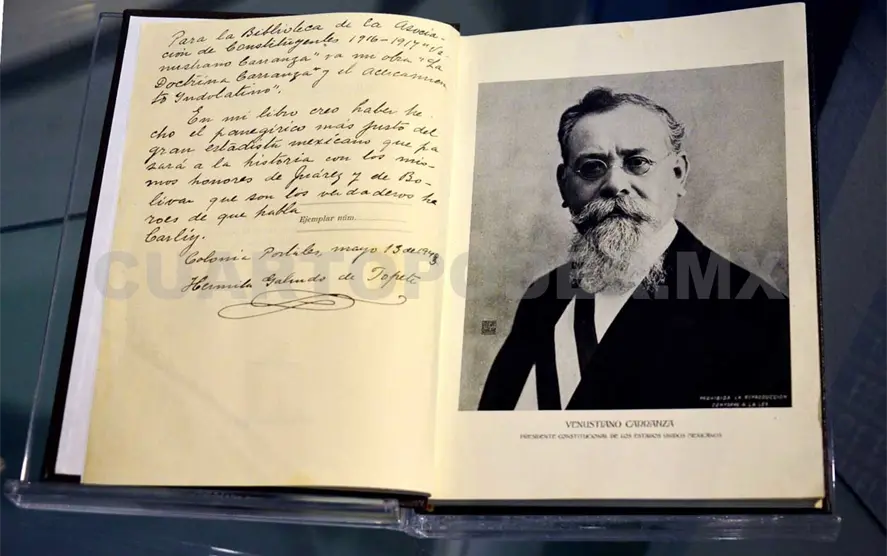 Para la Biblioteca de la Asocia-
ción de Constituyentes 1916-1917 "Ve-
nustiano Carranza" va mi obra "La
Doctrina Carranza" y el Acercamien-
to Indolatino".
En mi libro creo haber he-
cho el panegírico más justo del
gran estadista mexicano que pa-
sará a la historia con los mis-
mos honores de Juárez y de Bo-
lívar que son los verdaderos hé-
roes de que habla
Ejemplar núm.
Carlíy.
Colonia Portales, mayo 13 de
Hermila Galindo de Topete
CUARTOPODER.MX
PROHIBIDA LA REPRODUCCION
CONFORME A LA LEY
VENUSTIANO CARRANZA
PRESIDENTE CONSTITUCIONAL DE LOS ESTADOS UNIDOS MEXICANOS